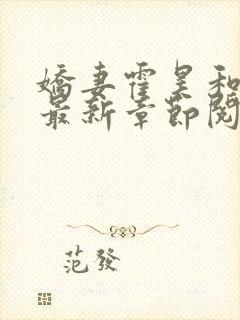 嬌妻霍昊和
最新章節閱
范發